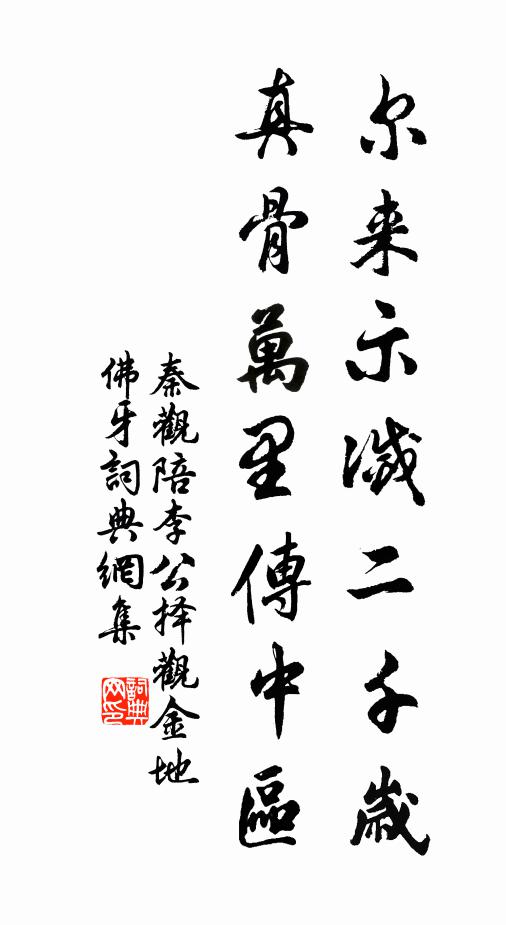 尔来示滅二千歲
真骨萬里傳中區
秦觀陪李公择觀金地
佛牙詞典網集
詞典
网印